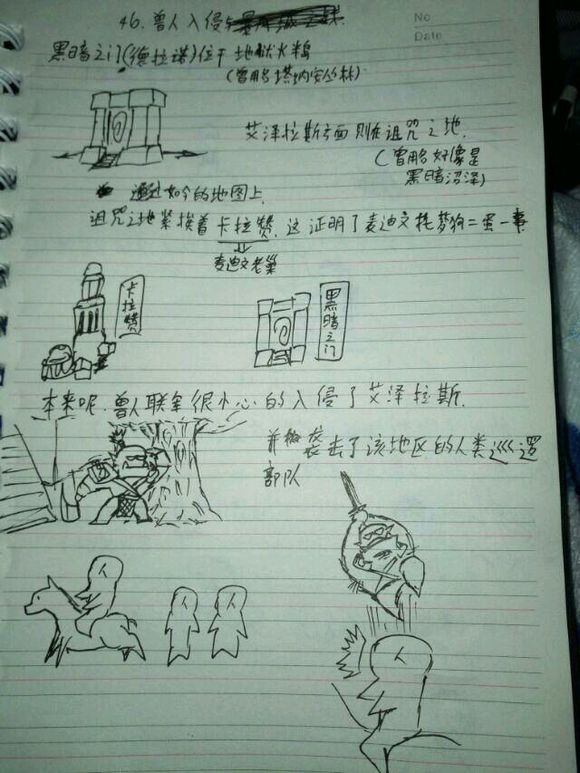 46.兽人入侵
No
Date
黑暗之门(德拉诺)位于 地狱火半岛
(曾用名塔纳安丛林)
艾泽拉斯方面则在诅咒之地.
(曾用名好像是
黑暗沼泽)
通过如今的地图上,
诅咒之地紧挨着卡拉赞.这证明了麦迪文托梦狗二蛋一事
麦迪文老巢
卡拉赞
黑暗之门
本来呢.兽人联军很小心的入侵了艾泽拉斯.
并 袭击了该地区的人类巡逻
部队
人
人
人
人